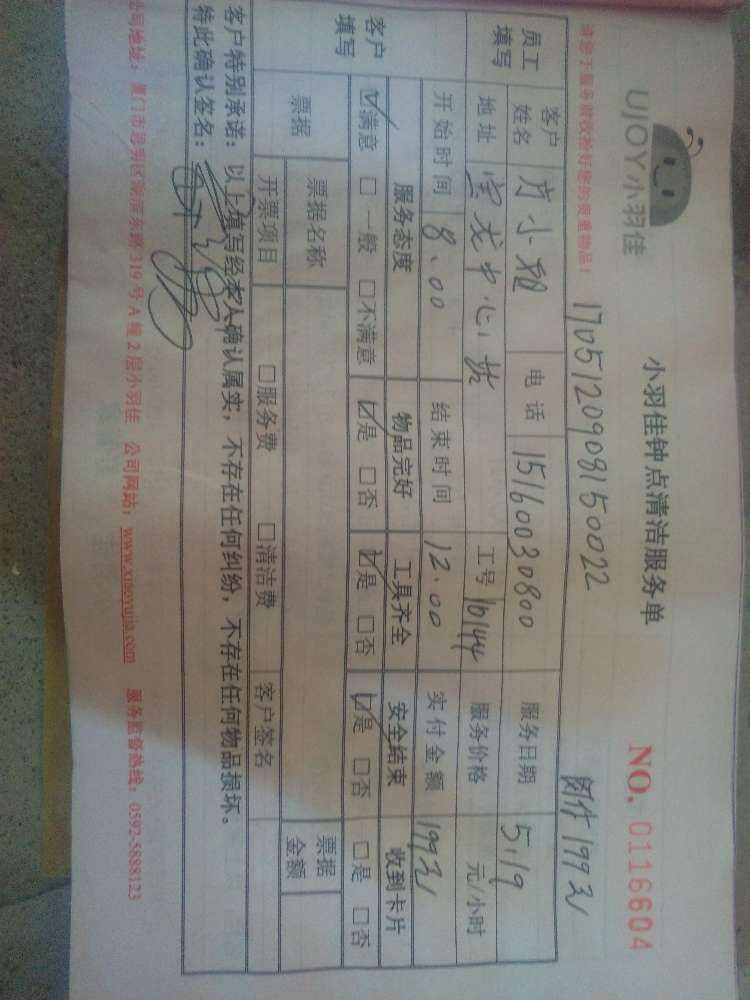 UJOY小羽佳
小羽佳钟点清洁服务单
NO. 0116604
请您于服务前收拾好您的贵重物品!
1705120908150022
网付199元
员工填写
客户姓名 方小姐 电话 15160030800 服务日期 5.19
地址 宝龙中心 工号 16144 服务价格 元/小时
开始时间 8.00 结束时间 12.00 实付金额 199元
客户填写
服务态度 物品完好 工具齐全 安全结束 收到卡片
☑满意 □一般 □不满意 ☑是 □否 ☑是 □否 ☑是 □否 □是 □否
票据 票据名称 票据金额
开票项目 □服务费 □清洁费 客户签名
客户特别承诺:以上填写经本人确认属实,不存在任何纠纷,不存在任何物品损坏。
特此确认签名:
公司地址:厦门市思明区湖滨东路319号A幢2层小羽佳 公司网站:www.xiaoyujia.com 服务监督热线:0592-5888123